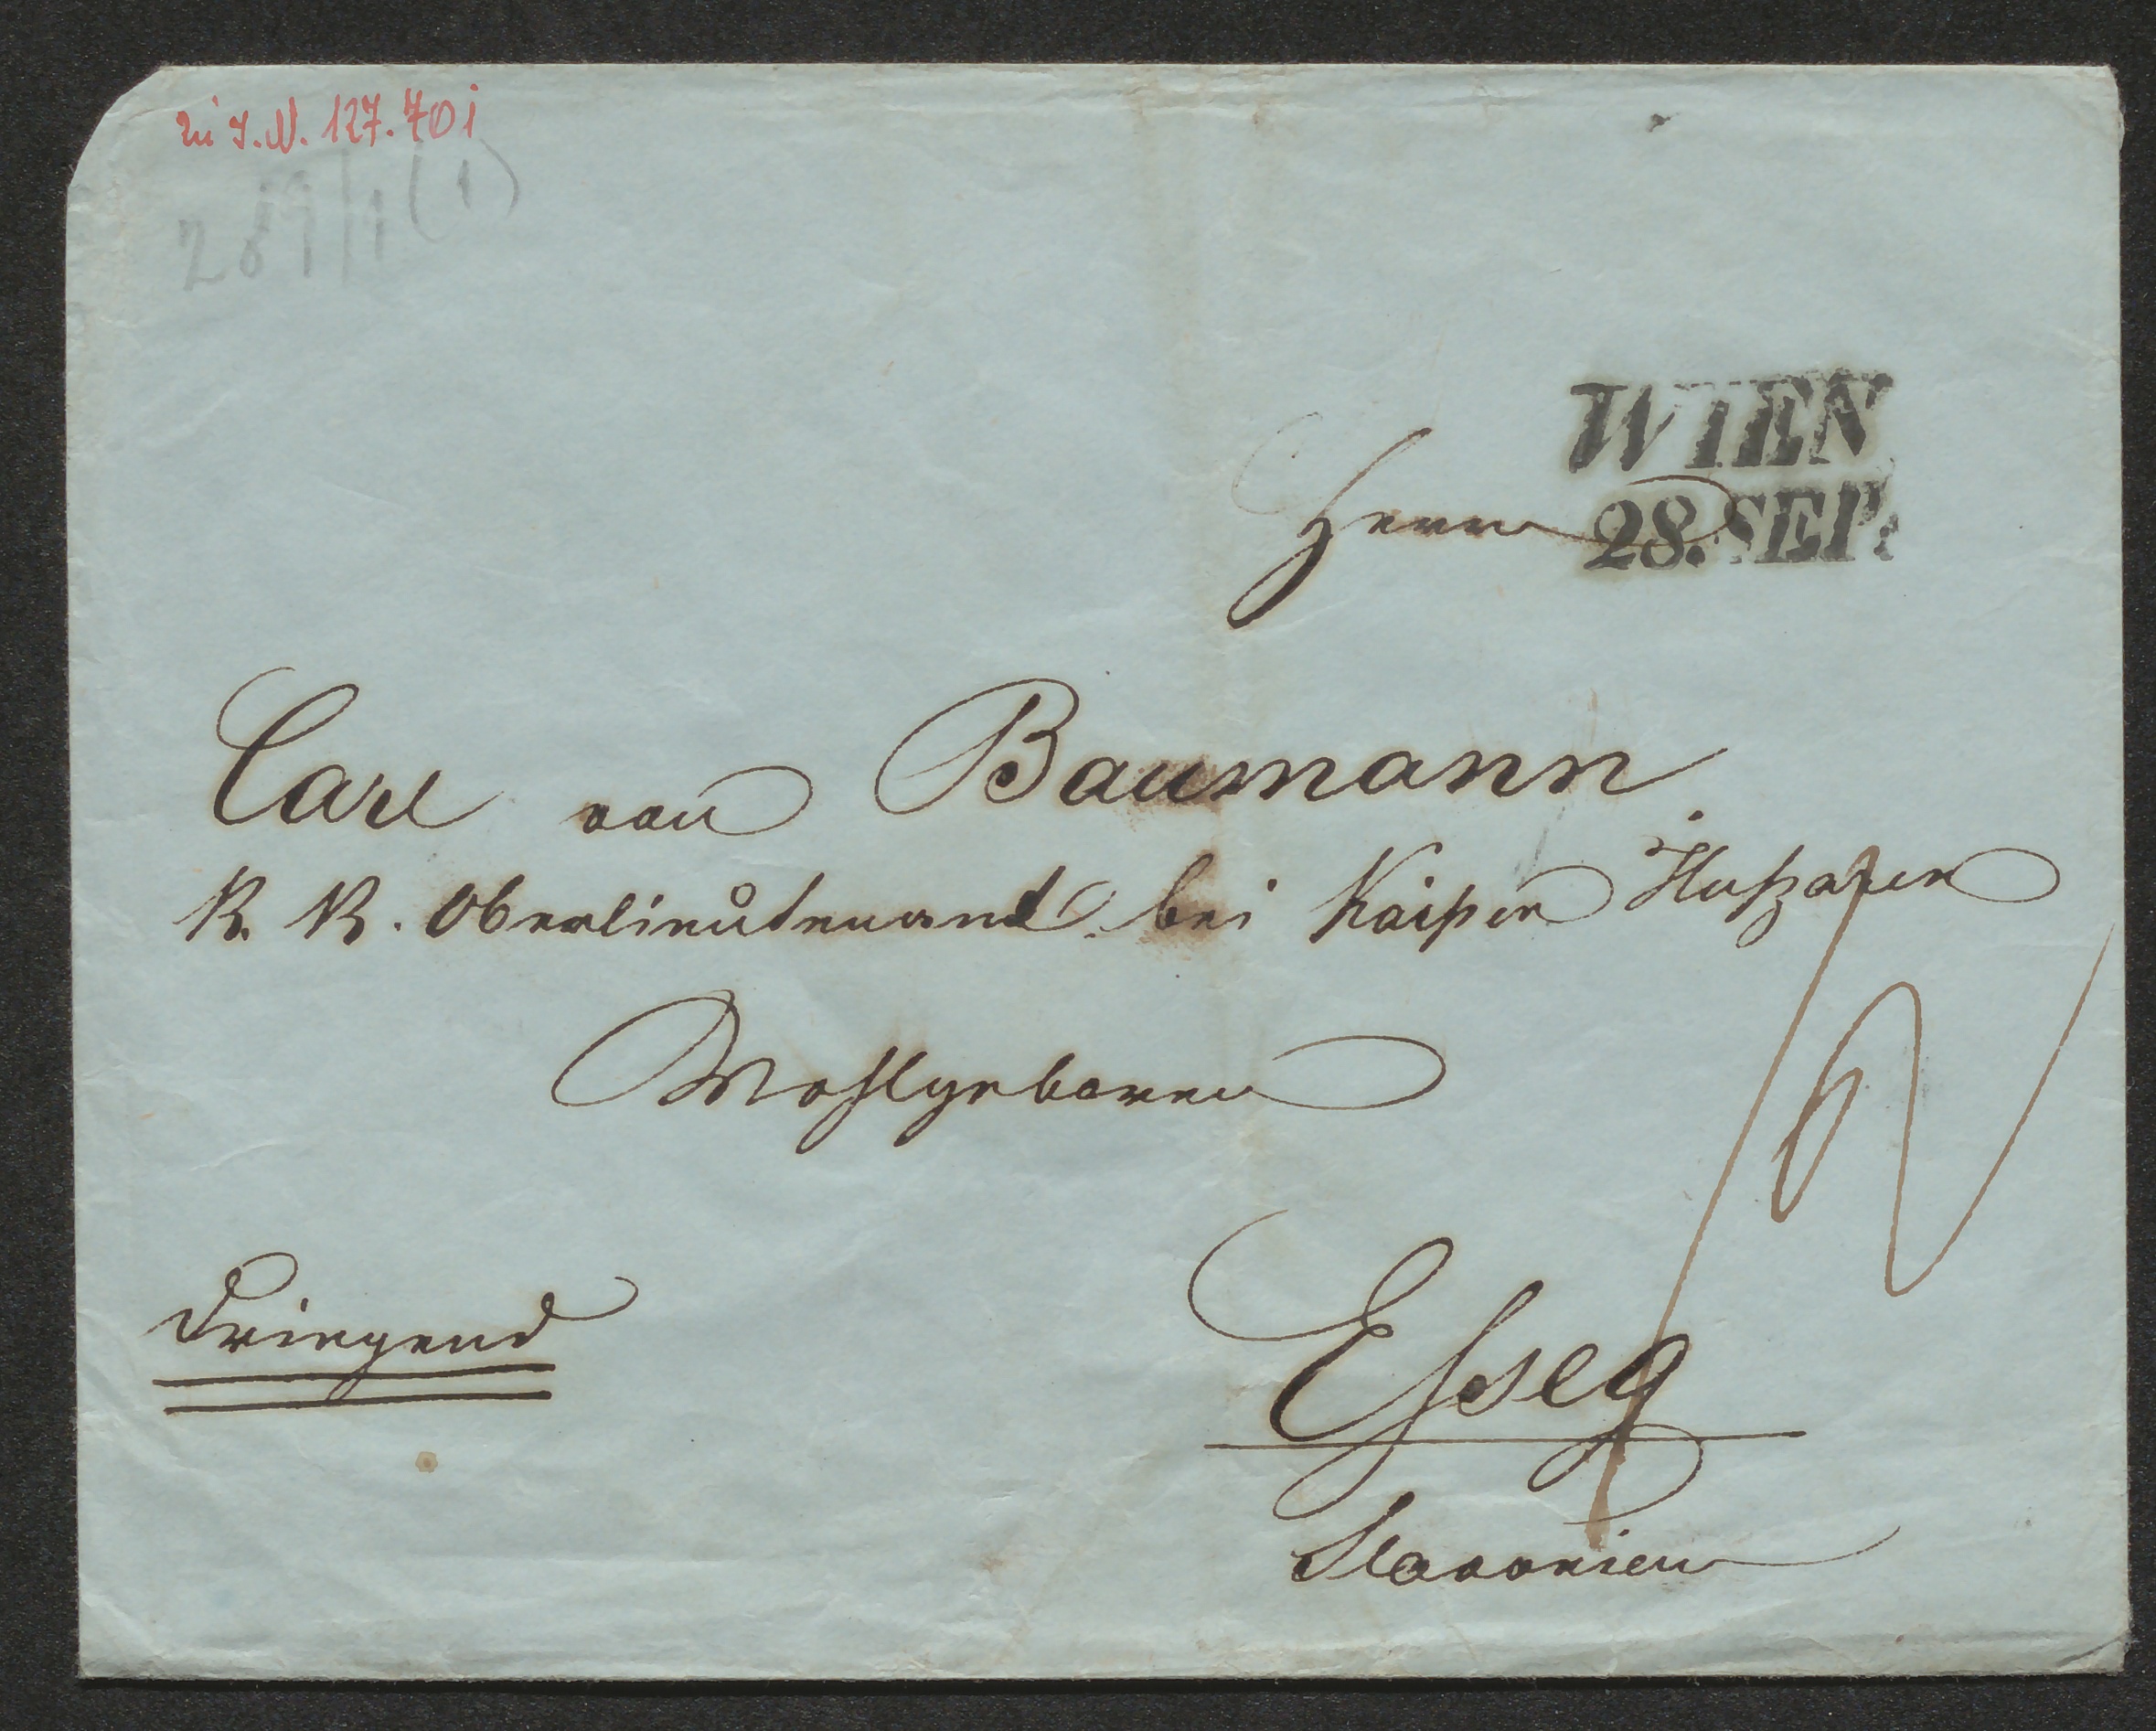 zu I.N. 127.701
289/1 (1)
WIEN
28. SEP.
Herrn
Carl von Baumann
K. K. Oberlieutenant bei Kaiser Hußaren
Wohlgeboren
Dringend
Esseg
Slavonien